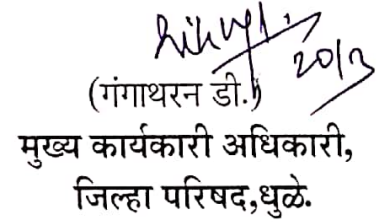 20/3
(गंगाथरन डी.)
मुख्य कार्यकारी अधिकारी,
जिल्हा परिषद,धुळे.